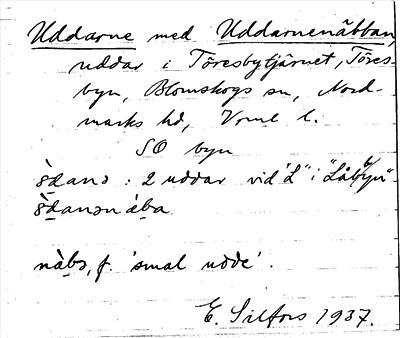 Uddarne med Uddarnenäbban,
uddar i Töresbytjärnet, Töres-
byn, Blomskogs sn, Nord-
marks hd, Vrml l.
SO byn
2 uddar vid "L" i "Låbbyn"
nàbə, f. 'smal udde'.
E. Silfors 1937.